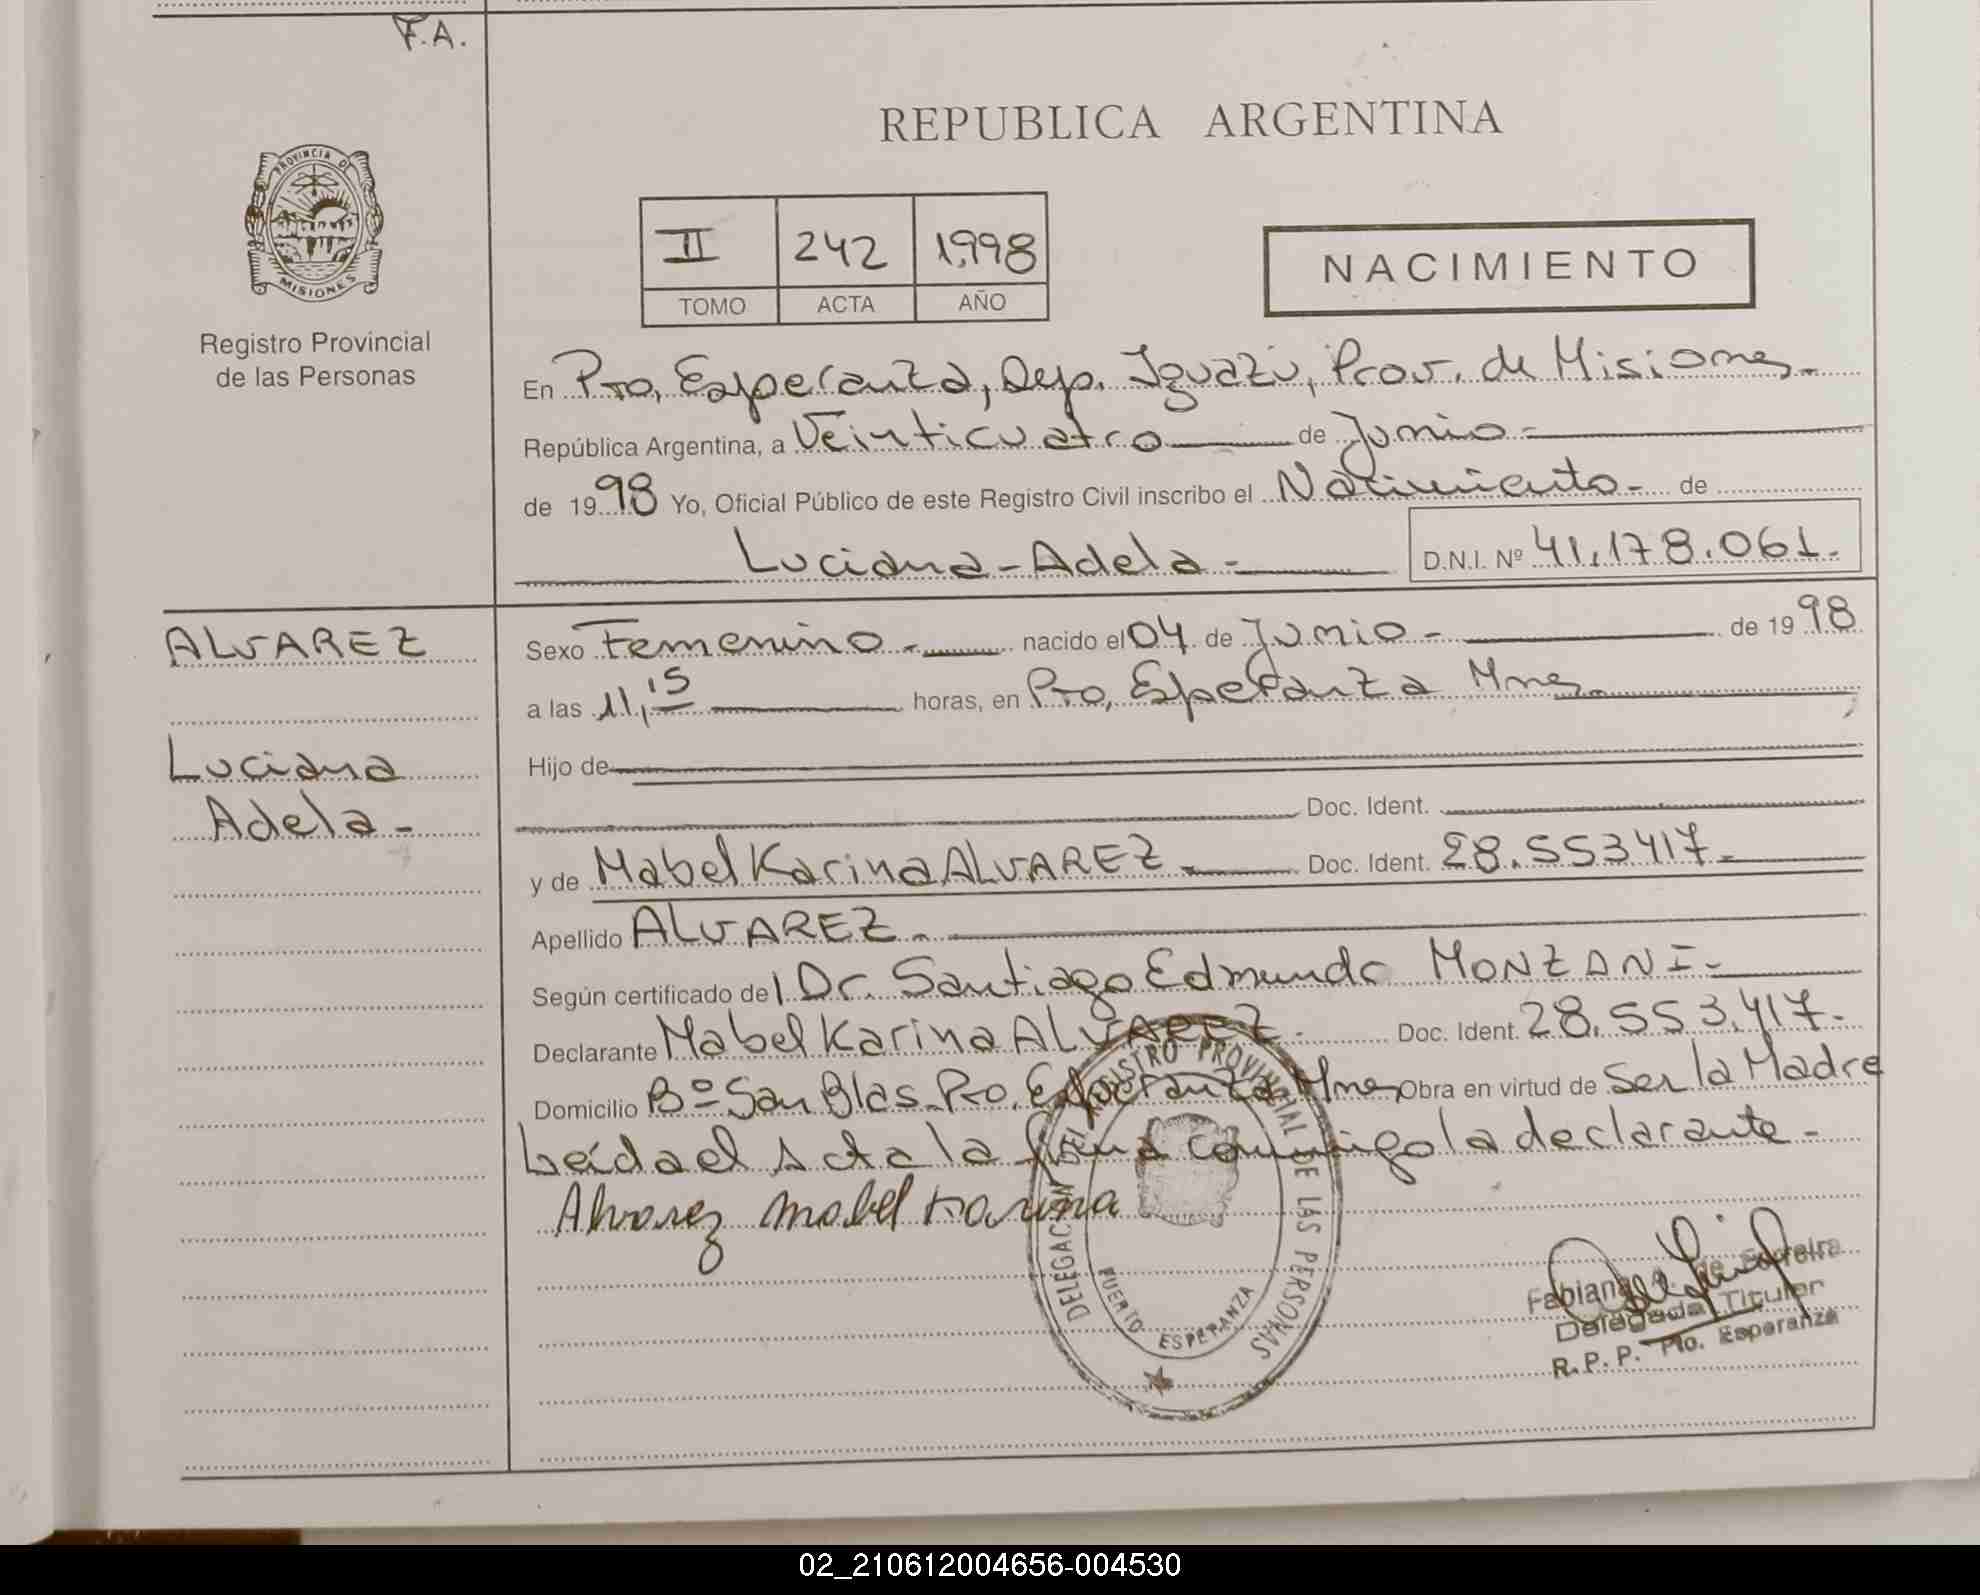 F.A.
REPUBLICA ARGENTINA
PROVINCIA DE
MISIONES
II 242 1.998
TOMO ACTA AÑO
NACIMIENTO
Registro Provincial
de las Personas
En Pto, Esperanza, Dep. Iguazú, Prov. de Misiones.
República Argentina, a Veinticuatro de Junio -
de 1998 Yo, Oficial Público de este Registro Civil inscribo el Nacimiento - de
Luciana - Adela - D.N.I. Nº 41.178.061.
ALVAREZ
Luciana
Adela -
Sexo Femenino - nacido el 04 de Junio - de 1998
a las 11,15 horas, en Pto, Esperanza Mnes.
Hijo de
Doc. Ident.
y de Mabel Karina ALVAREZ - Doc. Ident. 28.553417 -
Apellido ALVAREZ -
Según certificado del Dr. Santiago Edmundo MONZANI -
Declarante Mabel Karina ALVAREZ - Doc. Ident. 28.553.417 -
Domicilio Bº San Blas Pto. Esperanza Mnes Obra en virtud de Ser la Madre
Leída el Acta la firma conmigo la declarante -
Alvarez Mabel Karina
DELEGACION DEL REGISTRO PROVINCIAL DE LAS PERSONAS
PUERTO ESPERANZA
Fabiana de Ferreira
Delegada Titular
R.P.P. Pto. Esperanza
02_210612004656-004530